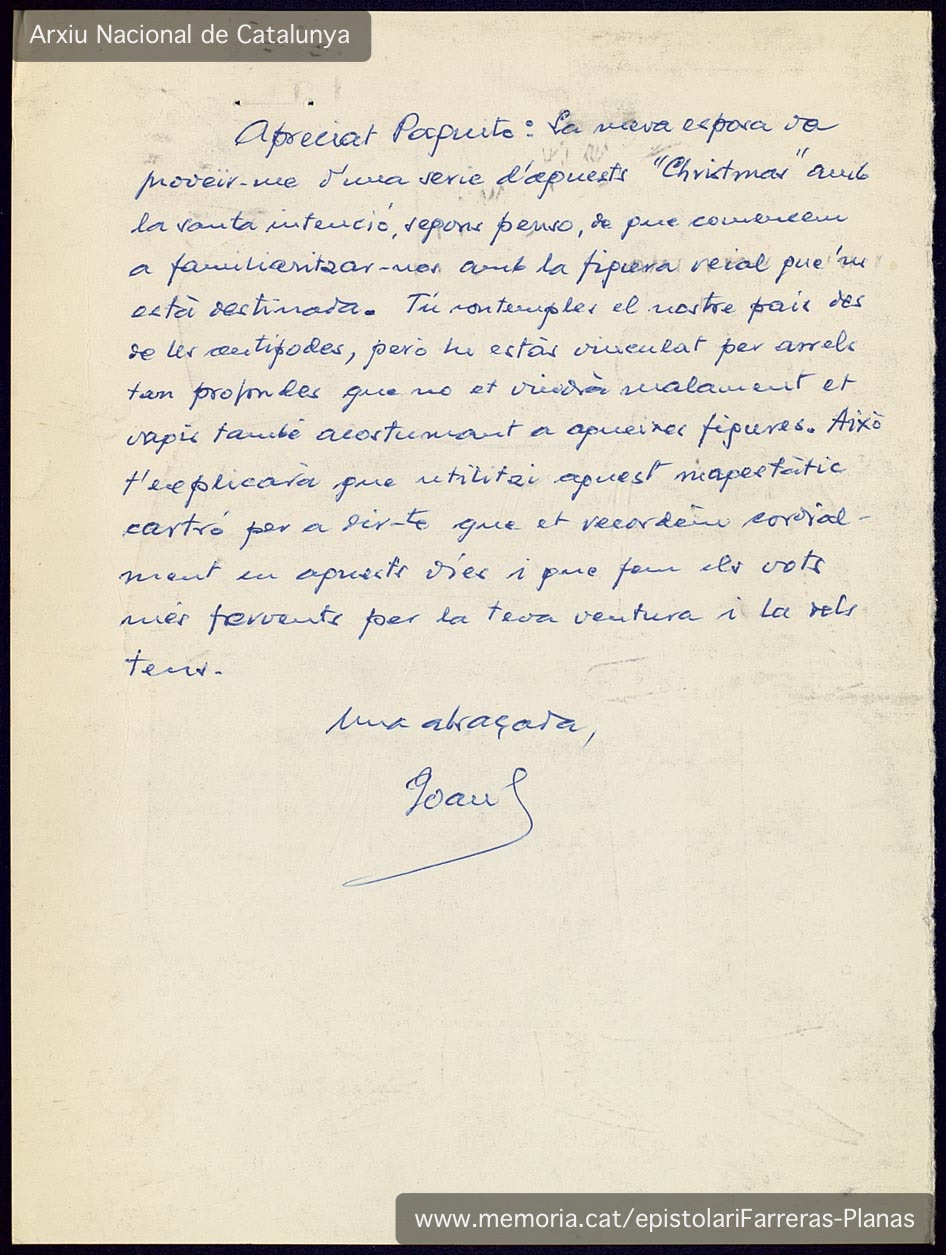 Arxiu Nacional de Catalunya
Apreciat Paquito: La meva esposa va
proveïr-me d'una serie d'aquests "Christmas" amb
la santa intenció, segons penso, de que comencem
a familiaritzar-nos amb la figura reial que'ns
està destinada. Tú contemples el nostre pais des
de les antípodes, però hi estàs vinculat per arrels
tan profondes que no et vindrà malament et
vagis també acostumant a aqueixes figures. Això
t'explicarà que utilitzi aquest majestàtic
cartró per a dir-te que et recordem cordial-
ment en aquests dies i que fem els vots
més fervents per la teva ventura i la dels
teus.
Una abraçada,
Joan
www.memoria.cat/epistolariFarreras-Planas